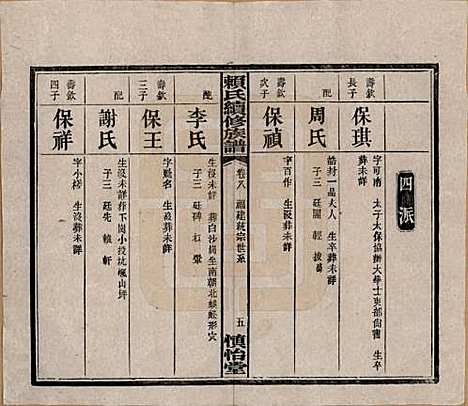 四派
壽欽
長子
保琪
字可南 太子太保協辦大學士吏部尚書 生卒
葬未詳
配
周氏
誥封一品夫人 生卒葬未詳
子三 廷
壽欽
次子
保禎
字百作 生沒葬未詳
配
李氏
生沒未詳 葬白沙岡坐南朝北蜈蚣形穴
子三 廷碑
賴氏續修族譜
卷八
五
慎怡堂
壽欽
三子
保王
字 名 生沒葬未詳
配
謝氏
生沒未詳葬下崗小投坑 山坪
子三 廷先 軒
壽欽
四子
保祥
字小 生沒葬未詳